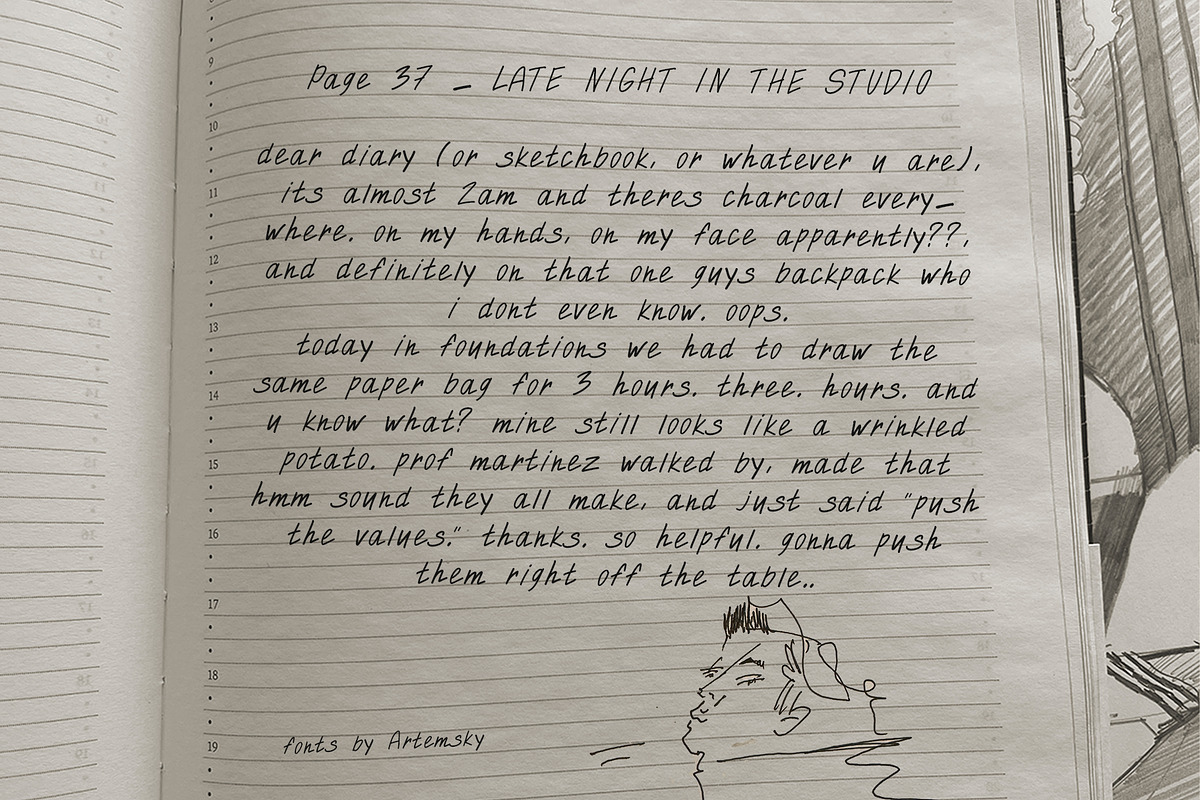 9
Page 37 – LATE NIGHT IN THE STUDIO
10
dear diary (or sketchbook, or whatever u are),
11
its almost 2am and theres charcoal every–
where. on my hands, on my face apparently??,
12
and definitely on that one guys backpack who
i dont even know. oops.
13
today in foundations we had to draw the
same paper bag for 3 hours. three. hours. and
14
u know what? mine still looks like a wrinkled
15
potato. prof martinez walked by, made that
hmm sound they all make, and just said "push
16
the values." thanks. so helpful. gonna push
them right off the table..
17
18
19
fonts by Artemsky